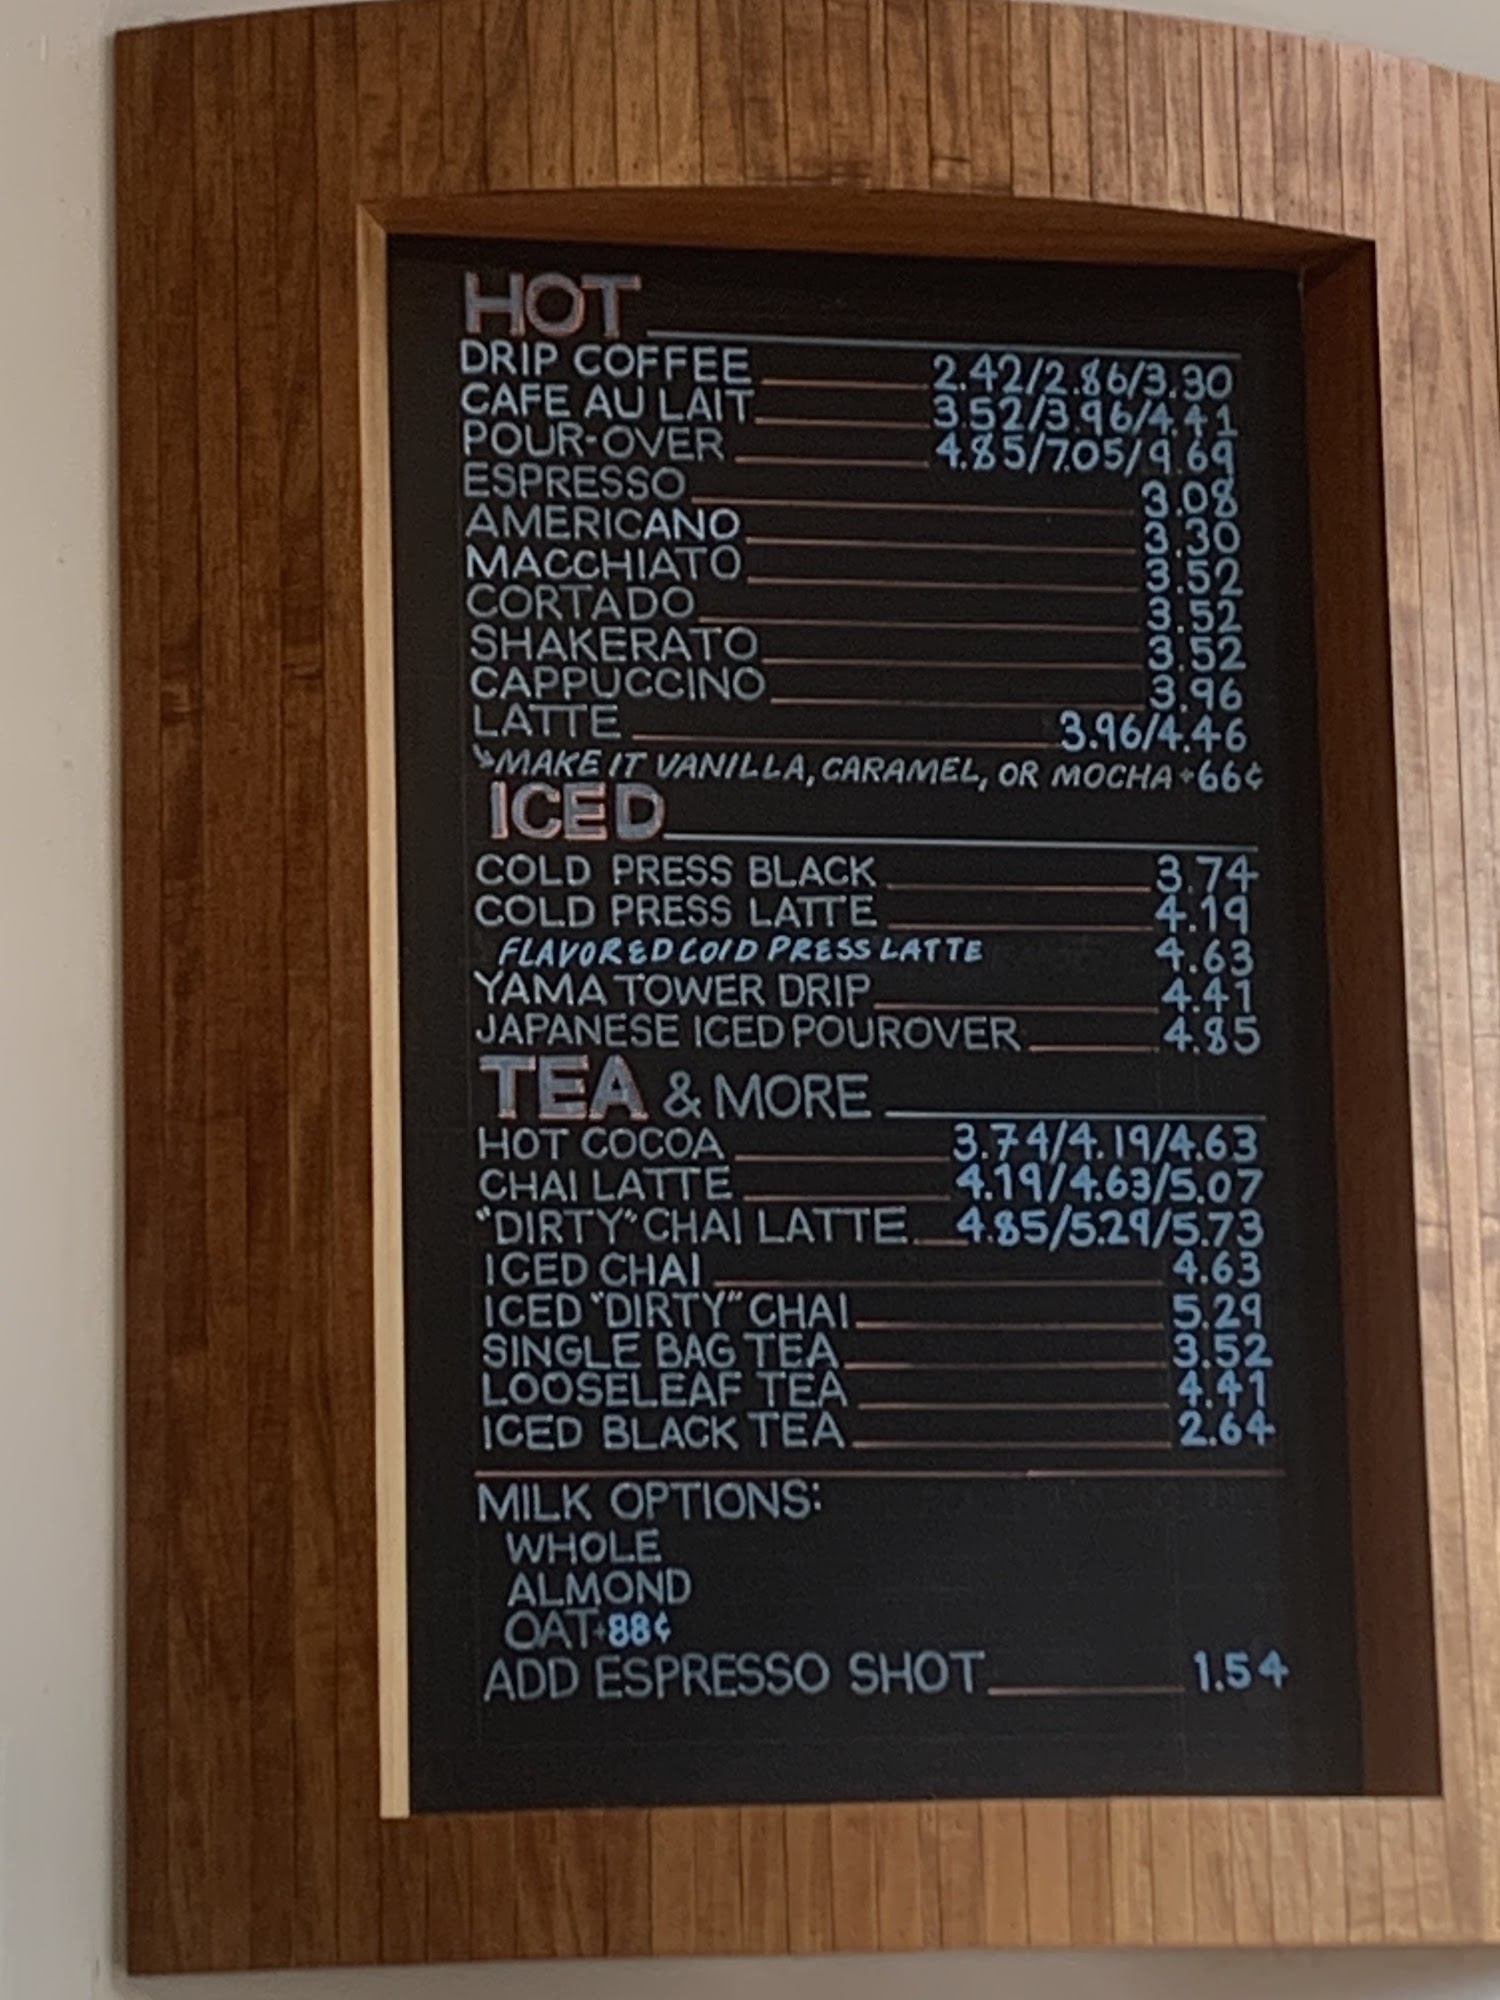 HOT
DRIP COFFEE 2.42/2.86/3.30
CAFE AU LAIT 3.52/3.96/4.41
POUR-OVER 4.85/7.05/9.69
ESPRESSO 3.08
AMERICANO 3.30
MACCHIATO 3.52
CORTADO 3.52
SHAKERATO 3.52
CAPPUCCINO 3.96
LATTE 3.96/4.46
MAKE IT VANILLA, CARAMEL, OR MOCHA +66¢
ICED
COLD PRESS BLACK 3.74
COLD PRESS LATTE 4.19
FLAVORED COLD PRESS LATTE 4.63
YAMA TOWER DRIP 4.41
JAPANESE ICED POUROVER 4.85
TEA & MORE
HOT COCOA 3.74/4.19/4.63
CHAI LATTE 4.19/4.63/5.07
"DIRTY" CHAI LATTE 4.85/5.29/5.73
ICED CHAI 4.63
ICED "DIRTY" CHAI 5.29
SINGLE BAG TEA 3.52
LOOSELEAF TEA 4.41
ICED BLACK TEA 2.64
MILK OPTIONS:
WHOLE
ALMOND
OAT +88¢
ADD ESPRESSO SHOT 1.54